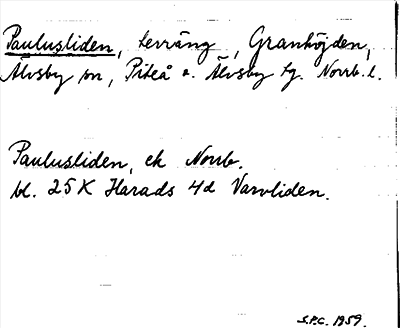 Paulusliden, terräng, Granhöjden,
Älvsby sn, Piteå o. Älvsby tg. Norrb. l.
Paulusliden, ek Norrb.
bl. 25 K Harads 4d Varvliden.
S.P.C. 1959.